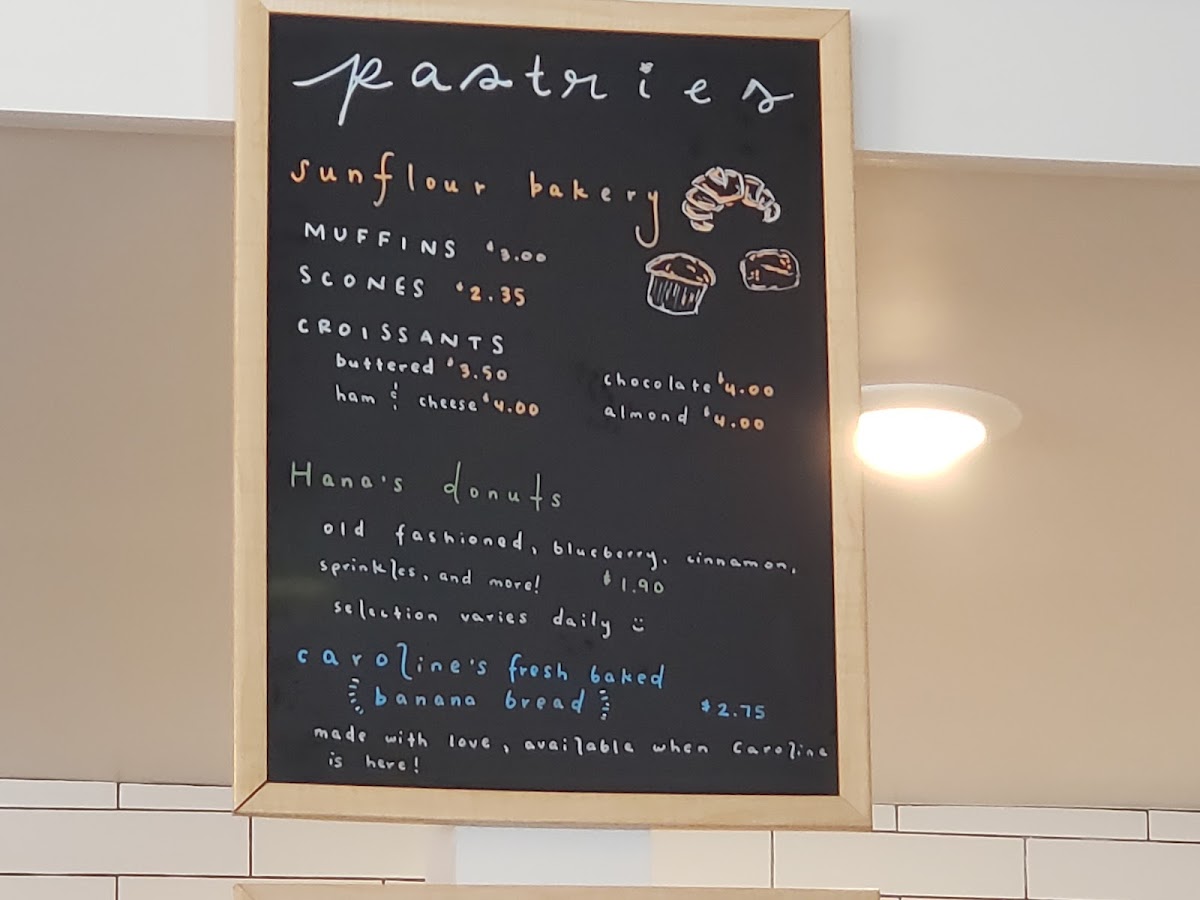 pastries
sunflour bakery
MUFFINS $3.00
SCONES $2.35
CROISSANTS
buttered $3.50 chocolate $4.00
ham & cheese $4.00 almond $4.00
Hana's donuts
old fashioned, blueberry, cinnamon,
sprinkles, and more! $1.90
selection varies daily :)
caroline's fresh baked
banana bread $2.75
made with love, available when Caroline
is here!